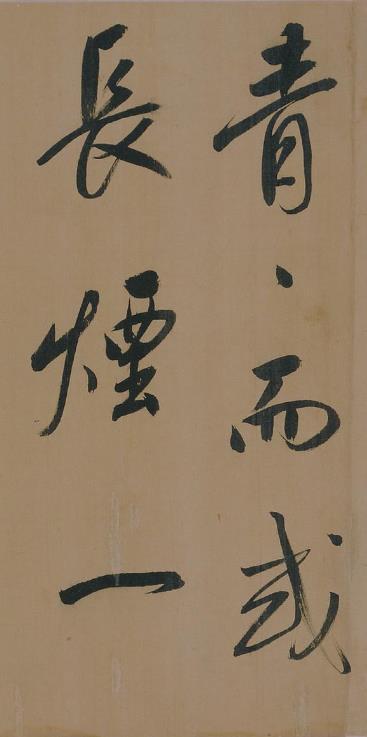 青〻而或
長煙一